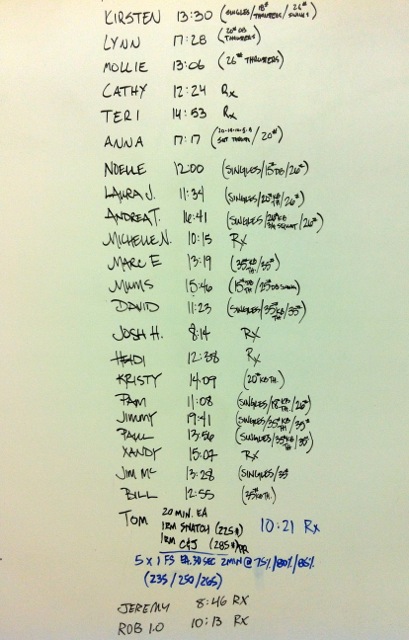 KIRSTEN 13:30 (SINGLES/18# THRUSTERS/26# SWINGS)
LYNN 17:28 (20# DB THRUSTERS)
MOLLIE 13:06 (26# THRUSTERS)
CATHY 12:24 Rx
TERI 14:53 Rx
ANNA 17:17 (/20#)
NOELLE 12:00 (SINGLES/15# DB/26#)
LAURA J. 11:34 (SINGLES/20# KB TH./26#)
ANDREA T. 16:41 (SINGLES/20# KB SQUAT/26#)
MICHELLE N. 10:15 RX
MARC E 13:19 (35# KB TH./35#)
MUMS 15:46 (15# DB TH/25# DB SWING)
DAVID 11:23 (SINGLES/35# KB TH/35#)
JOSH H. 8:14 RX
HEIDI 12:38 RX
KRISTY 14:09 (20# KB TH.)
PAM 11:08 (SINGLES/18# KB TH./26#)
JIMMY 19:41 (SINGLES/35# KB TH/35#)
PAUL 13:56 (SINGLES/35# KB TH/35)
XANDY 15:07 RX
JIM MC 13:28 (SINGLES/35
BILL 12:55 (35# KB TH.)
TOM 20 MIN. EA 10:21 Rx
1RM SNATCH (225#)
1RM C&J (285#) PR
5 x 1 FS EA. 30 SEC 2 MIN @ 75%/80%/85%
(235/250/265)
JEREMY 8:46 RX
ROB 1.0 10:13 RX